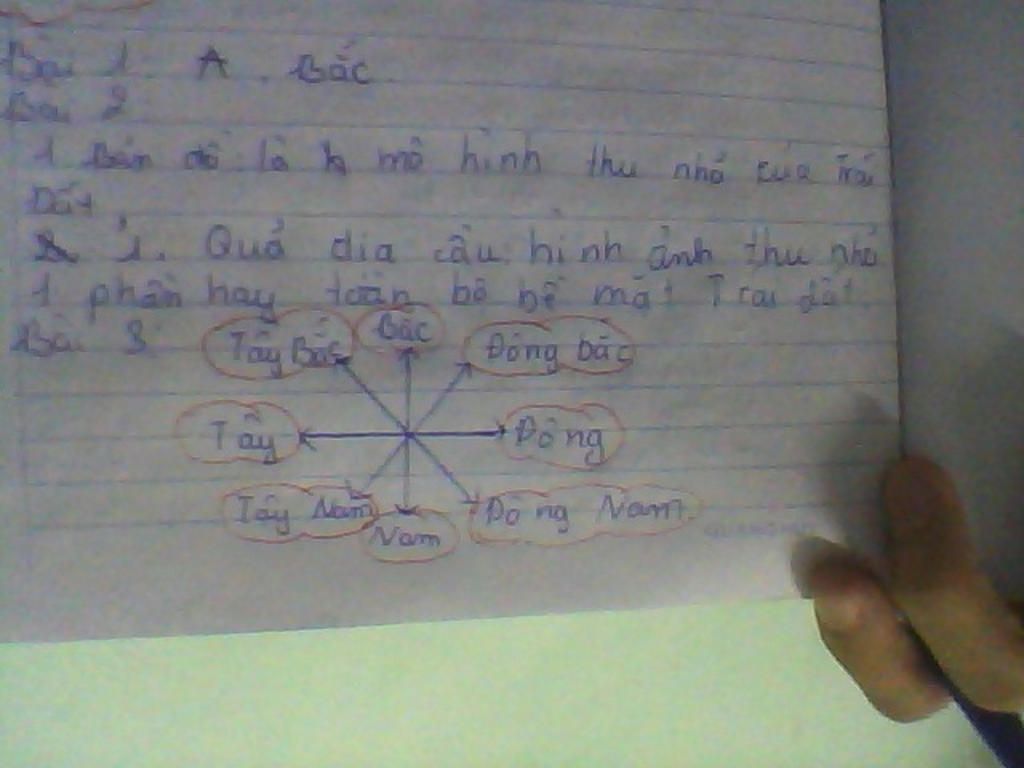 Bài 1: A. Bắc
Bài 2
1 Bản đồ là mô hình thu nhỏ của Trái
Đất
1. Quả địa cầu hình ảnh thu nhỏ
1 phần hay toàn bộ bề mặt Trái đất.
Bài 3
Tây Bắc Bắc Đông bắc
Tây Đông
Tây Nam Nam Đông Nam